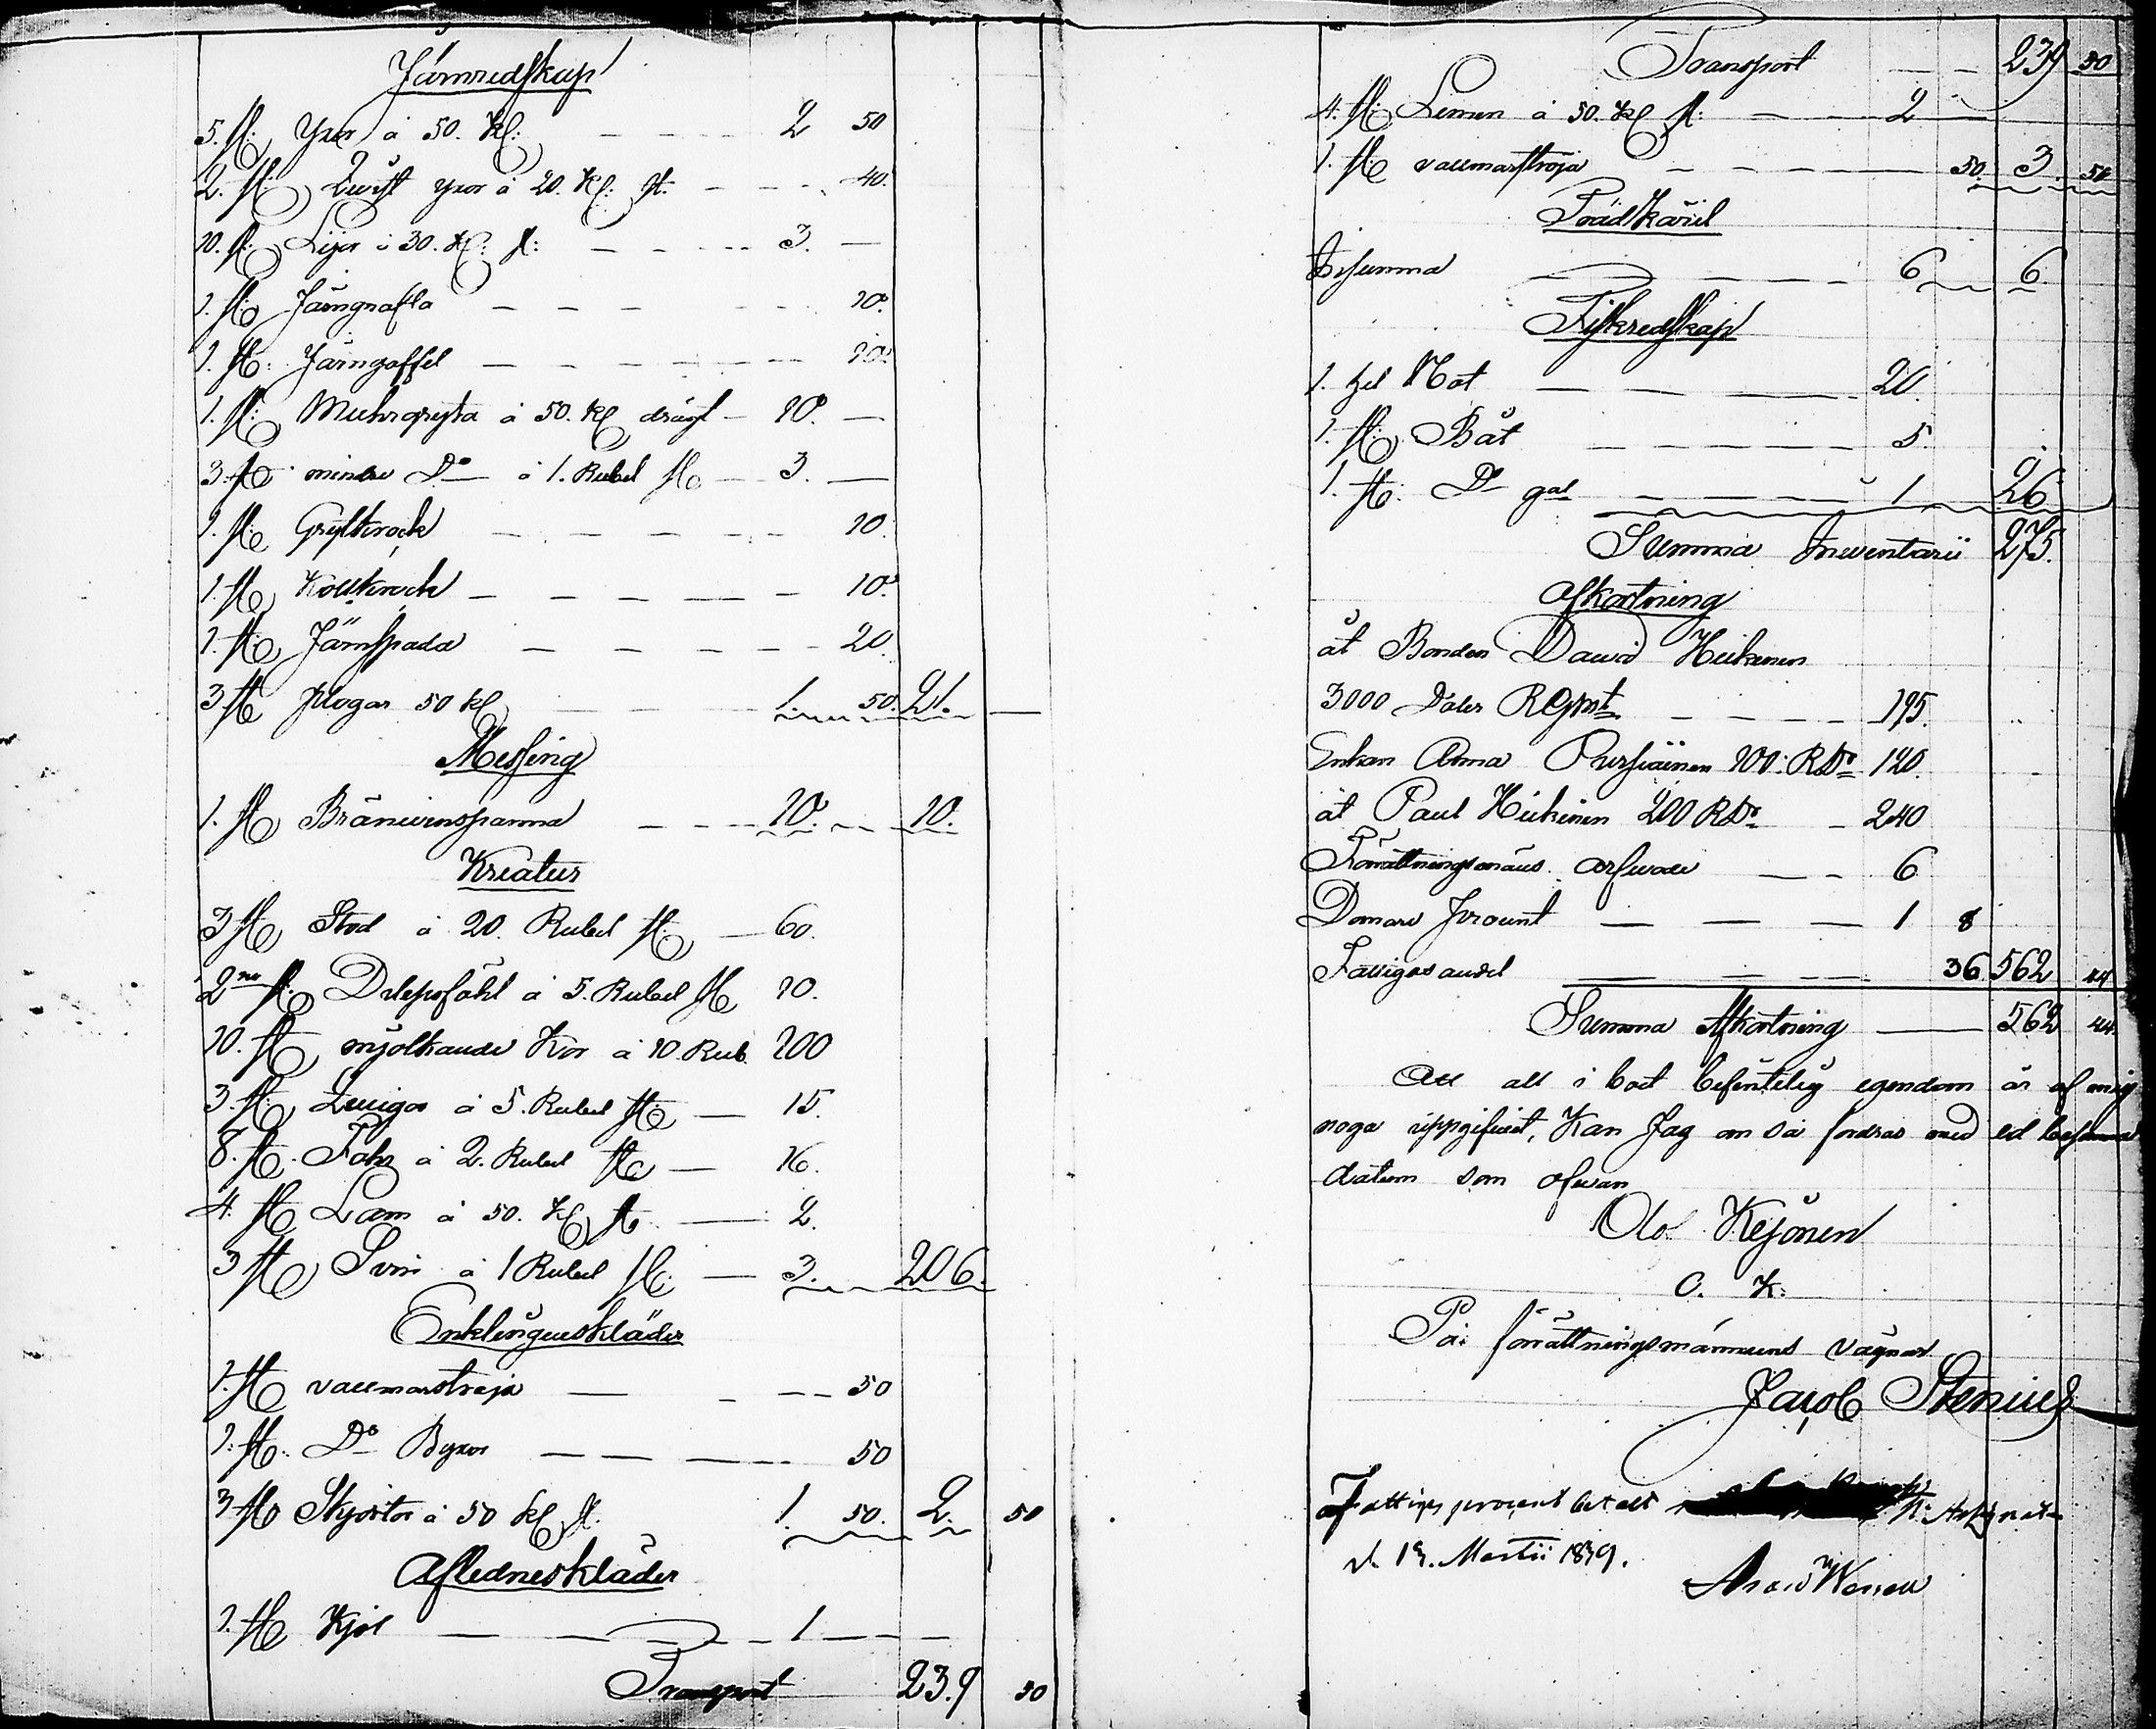 Järnredskap
5. st: yxor á 50. kp: 2 50
2. st: Qvist yxor á 20. kp: st. 40.
10. st: Lijor á 30. kp: st: 3.
1. st: Järngrafla 10.
1. st: Järngaffel 10.
1. st: Muhrgryta á 50. kp drägt 10.
3. st: mindre Do á 1. Rubel st 3.
1. st: Grytkrock 10.
1. st: Kollkrock 10.
1. st: Järnspada 20.
3 st plogar 50 kp 1. 50. 21.
Messing
1. st Bränevinspanna 10. 10.
Kreatur
3 st Stod á 20. Rubel st: 60.
2ne st: Dileposfåhl á 5. Rubel st 10.
10. st: mjölkande Kor á 10. Rub. 100
3. st: Quigor á 5. Rubel st: 15.
8. st. Fåhr á 2. Rubel st 16.
4. st Lam á 50. kp st 2.
3 st Svin á 1 Rubel st: 3. 206.
Enklingenskläder
1. st vallmarströja 50
1. st: Do Byxor 50
3 st Skjortor á 50 kp st. 1. 50. 2. 50
Aflednes kläder
1. st Kjol 1
Transport 239 50
Transport 239 50
4. st: Linnen á 50. kp st: 2
1. st vallmarströja 50. 3. 50
Trädkäril
Tilsumma 6 6.
Fiskredskap
1. hel Not 20.
1. st: Båt 5.
1. st: Do gal 1 26
Summa Inventarii 275.
Afkortning
åt Bonden David Heikinen
3000 Daler RGmt 195.
Enkan Anna Pursiäinen 100: RDr 120.
åt Paul Heikinen 200 RDr 240
Förrättningsmäns arfwode 6
Domare procent 1 8
Fattigas andel 36 562 44
Summa Afkortning 562 44.
Att all i boet befintelig egendom är af mig
noga uppgifwit, Kan Jag om så fordras med ed
datum som ofwan
Olo. Kejonen
O. K.
På förrättningsmännens vägnar
Jacob Stenius
Fattigs procent betalt
d. 19. Martii 1839.